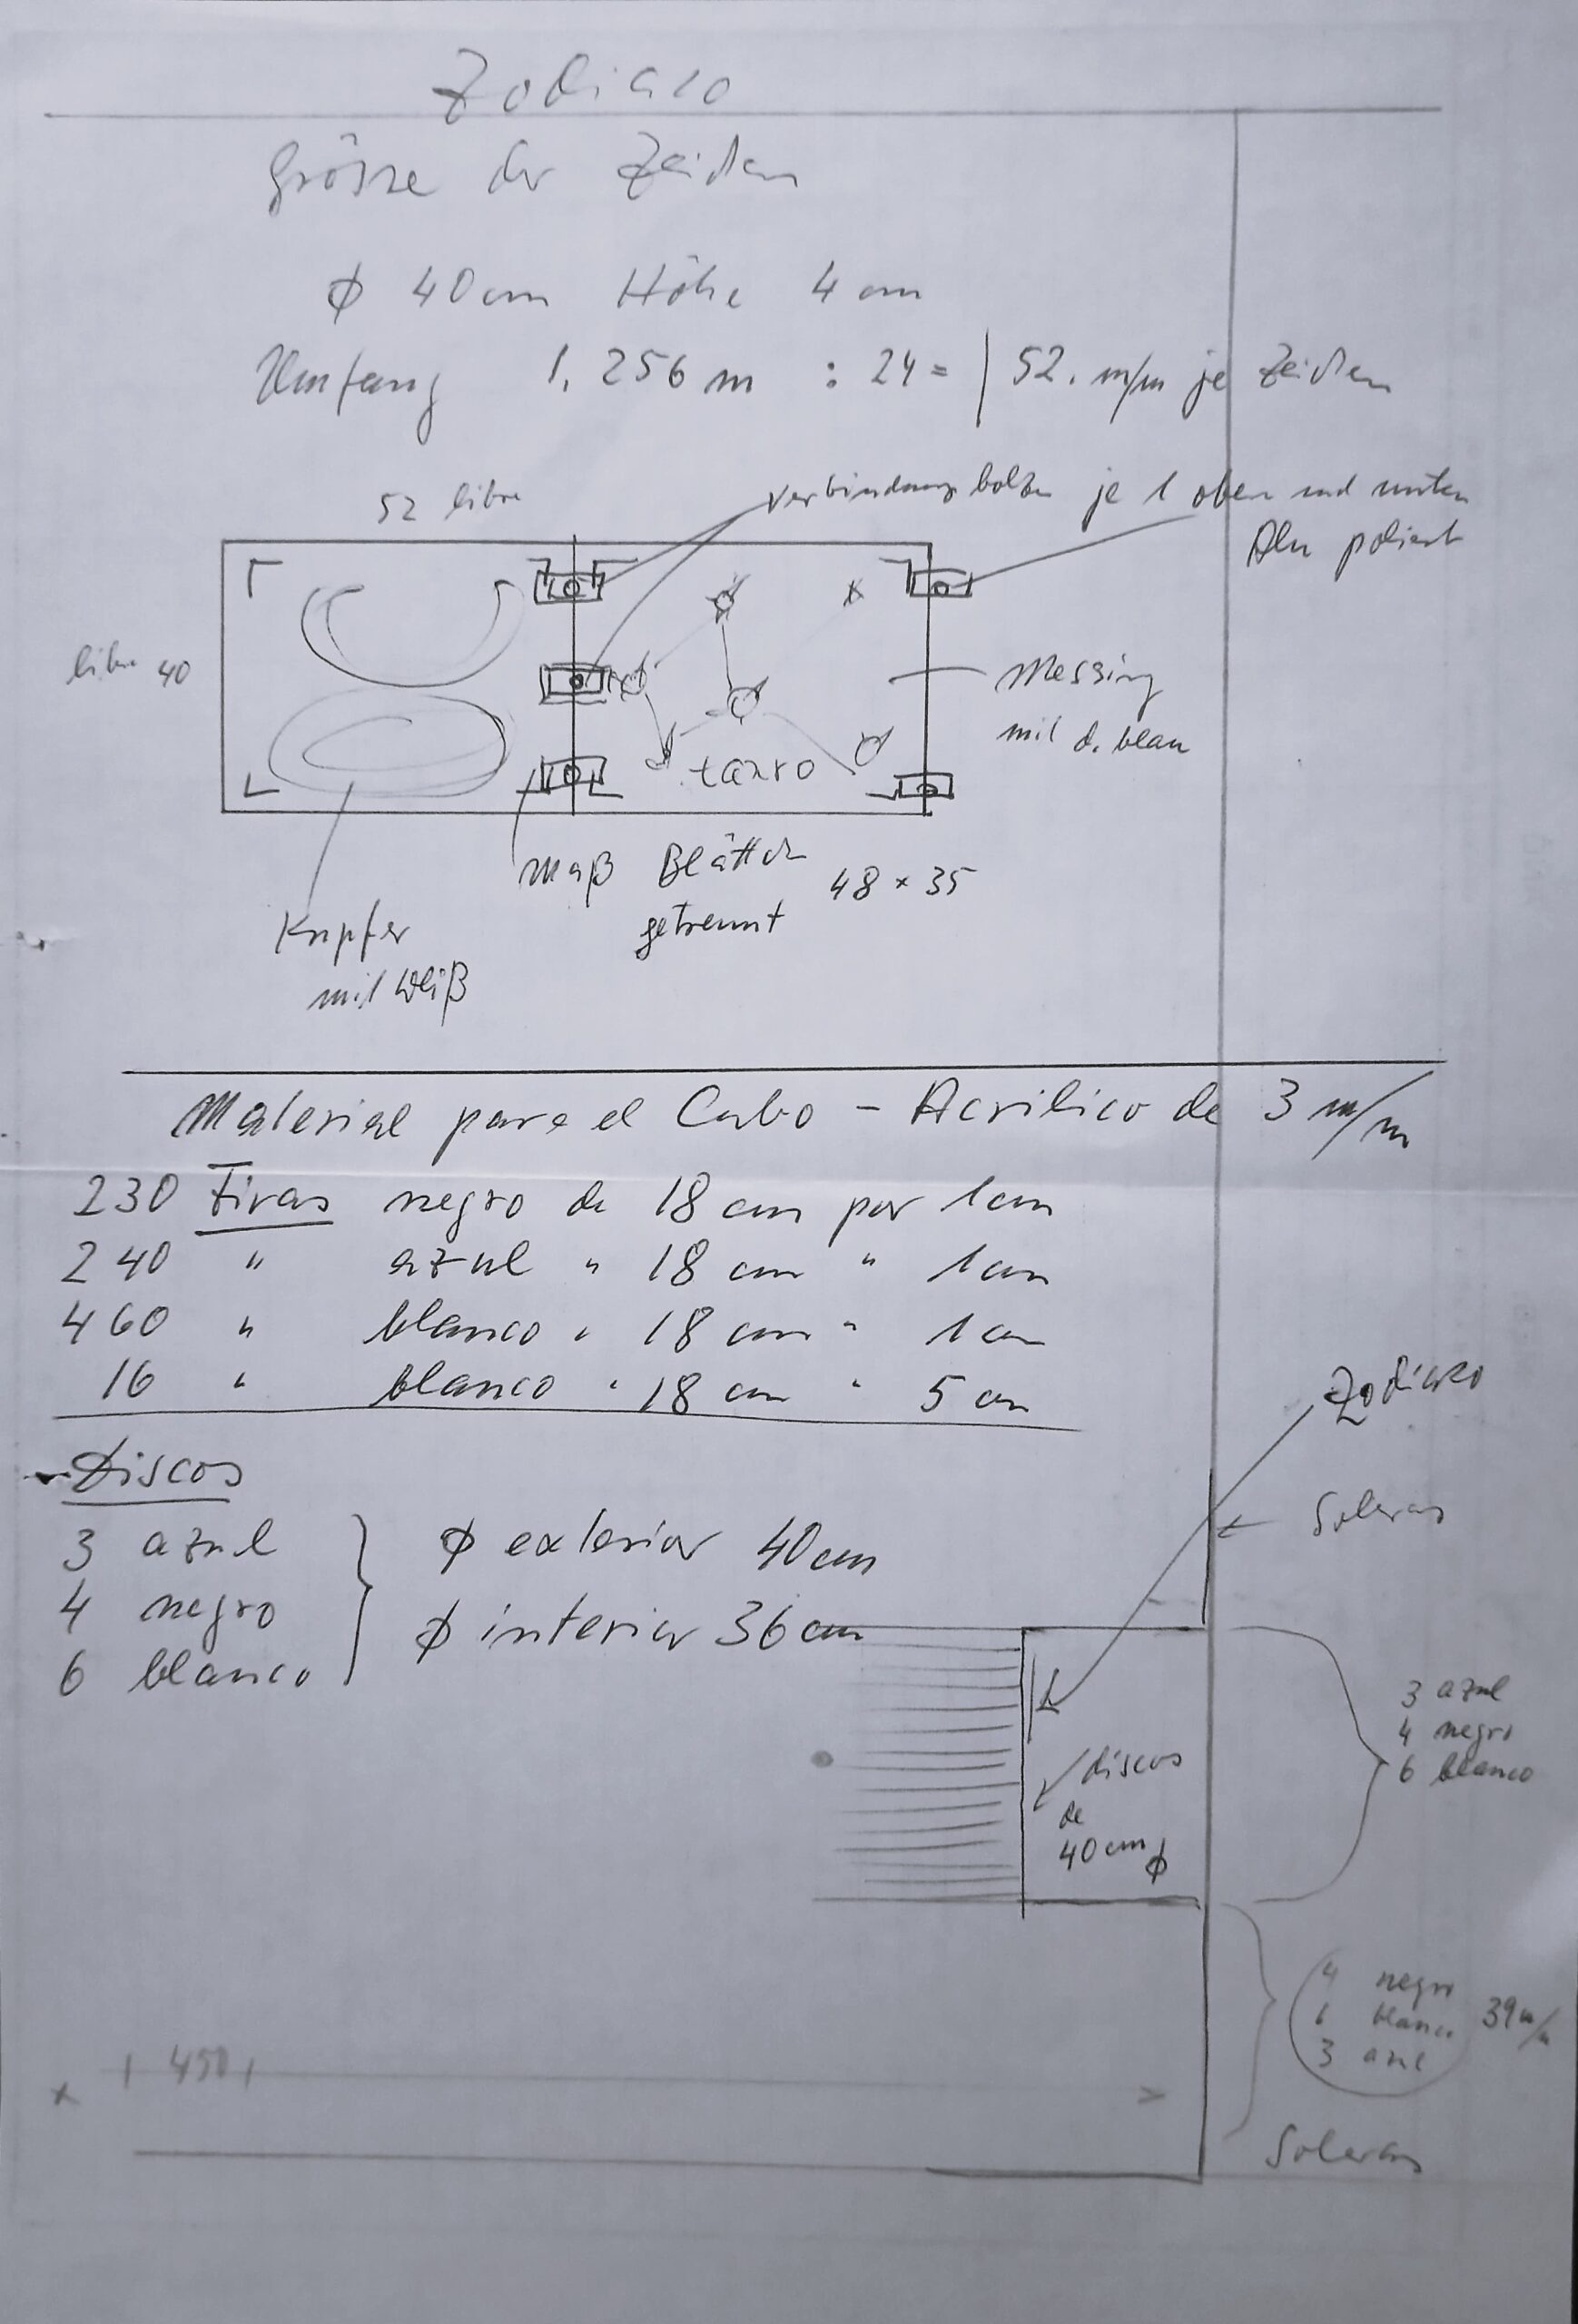 Zodiaco
Grösse der Zeichen
ϕ 40cm Höhe 4 cm
Umfang 1,256 m : 24 = | 52. m/m je Zeichen
52 libre
Verbindungsbolzen je 1 oben und unten
Alu poliert
libre 40
Messing
mit d. blau
tauro
Maß Blättch
getrennt
48 x 35
Kupfer
mit Weiß
Material para el Cubo - Acrilico de 3 m/m
230 Tiras negro de 18 cm por 1cm
240 " azul " 18 cm " 1cm
460 " blanco " 18 cm " 1cm
16 " blanco " 18 cm " 5 cm
Discos
3 azul
4 negro
6 blanco
ϕ exterior 40cm
ϕ interior 36cm
Zodiaco
Soleras
discos
de
40cm ϕ
3 azul
4 negro
6 blanco
4 negro
6 blanco
3 azul
39 m/m
450
Soleras